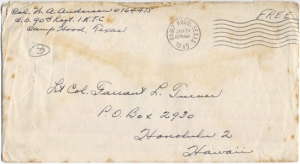 Col. W. A. Anderson 016445
C.O. 90th Regt. I R T C
Camp Hood, Texas
CAMP HOOD, TEXAS
JAN 31
1945
FREE
Lt Col. Farrant L. Turner
P.O. Box 2930
Honolulu 2
Hawaii